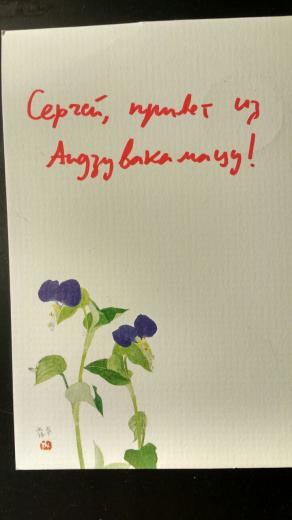 Сергей, привет из
Аидзувакамацу!